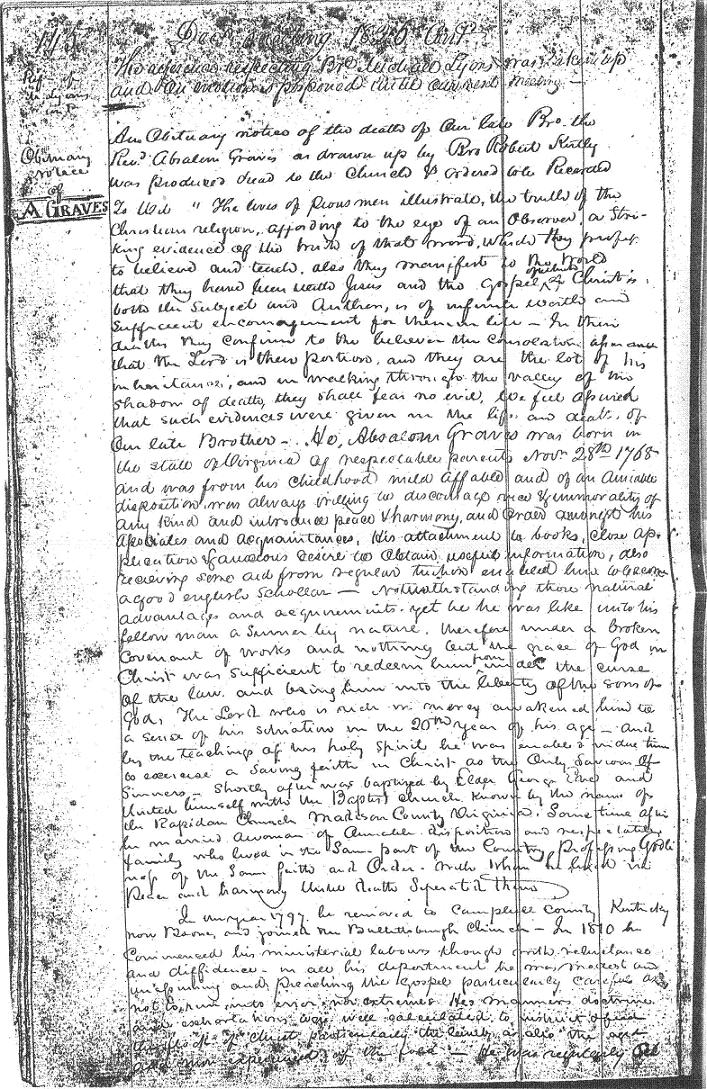 145
meeting 1826
The adjourned respecting Bro. Lyon was taken up
and on motion is postponed until our next meeting —
An Obituary notice of the death of Our late Bro. the
Revd. Absalom Graves as drawn up by Bro Robert Kirtly
was produced read to the Church & ordered to be Recorded
Obituary
notice
of
A GRAVES
To Wit " The lives of pious men illustrate, the truth of the
Christian religion, affording to the eye of an Observer, a Stri-
king evidence of the truth of that word, which they profess
to believe and teach, also they manifest to the World
that they have been with Jesus and the Gospel, of which Christ is
both the Subject and Author, is of infinite worth and
Sufficient encouragement for them in life — In their
deaths they confirm to the believer the consolatory assurance
that the Lord is their portion, and they are the lot of his
inheritance; and in walking through the valley of the
Shadow of death, they shall fear no evil, we feel assured
that such evidences were given in the life and death of
Our late Brother — He, Absalom Graves was born in
the state of Virginia of respectable parents Novr. 28th 1768
and was from his childhood mild affable and of an Amiable
disposition was always willing to discourage vice & immorality of
any kind and introduce peace & harmony, and order amongst his
Associates and acquaintances, His attachment to books, close ap-
plication & anxious desire to Obtain useful information, also
receiving some aid from regular tuition enabled him to become
a good english Schollar — notwithstanding those natural
advantages and acquirements yet he was like unto his
fellow man a Sinner by nature, therefore under a broken
Covenant of works and nothing but the grace of God in
Christ was sufficient to redeem him from under the curse
Of the law, and bring him into the liberty of the sons of
God, The Lord who is rich in mercy awakened him to
a sense of his situation in the 20th year of his age — And
by the teachings of his holy Spirit he was enabled in due time
to exercise a Saving faith in Christ as the Only Saviour Of
Sinners — Shortly after was baptised by Elder George Eve and
United himself with the Baptist church known by the name of
the Rapidan Church Madison County Virginia. Some time after
he married a woman of Amiable disposition and respectable
family who lived in the Same part of the Country professing Godli
ness of the Same faith and Order. With Whom he lived in
Peace and harmony Until death Seperated them
In the year 1797 he removed to Campbell County Kentucky
now Boone, and joined the Bullittsburgh Church — In 1810 he
Commenced his ministerial labours though with reluctance
and diffidence — in all his department he was modest and
and Preaching the Gospel particularly careful as
not to run into error, nor extremes His manners doctrine
and exhortations were well calculated to instruct &
the flock of Christ, particularly the as also the aged
and more experienced of the — He was regularly